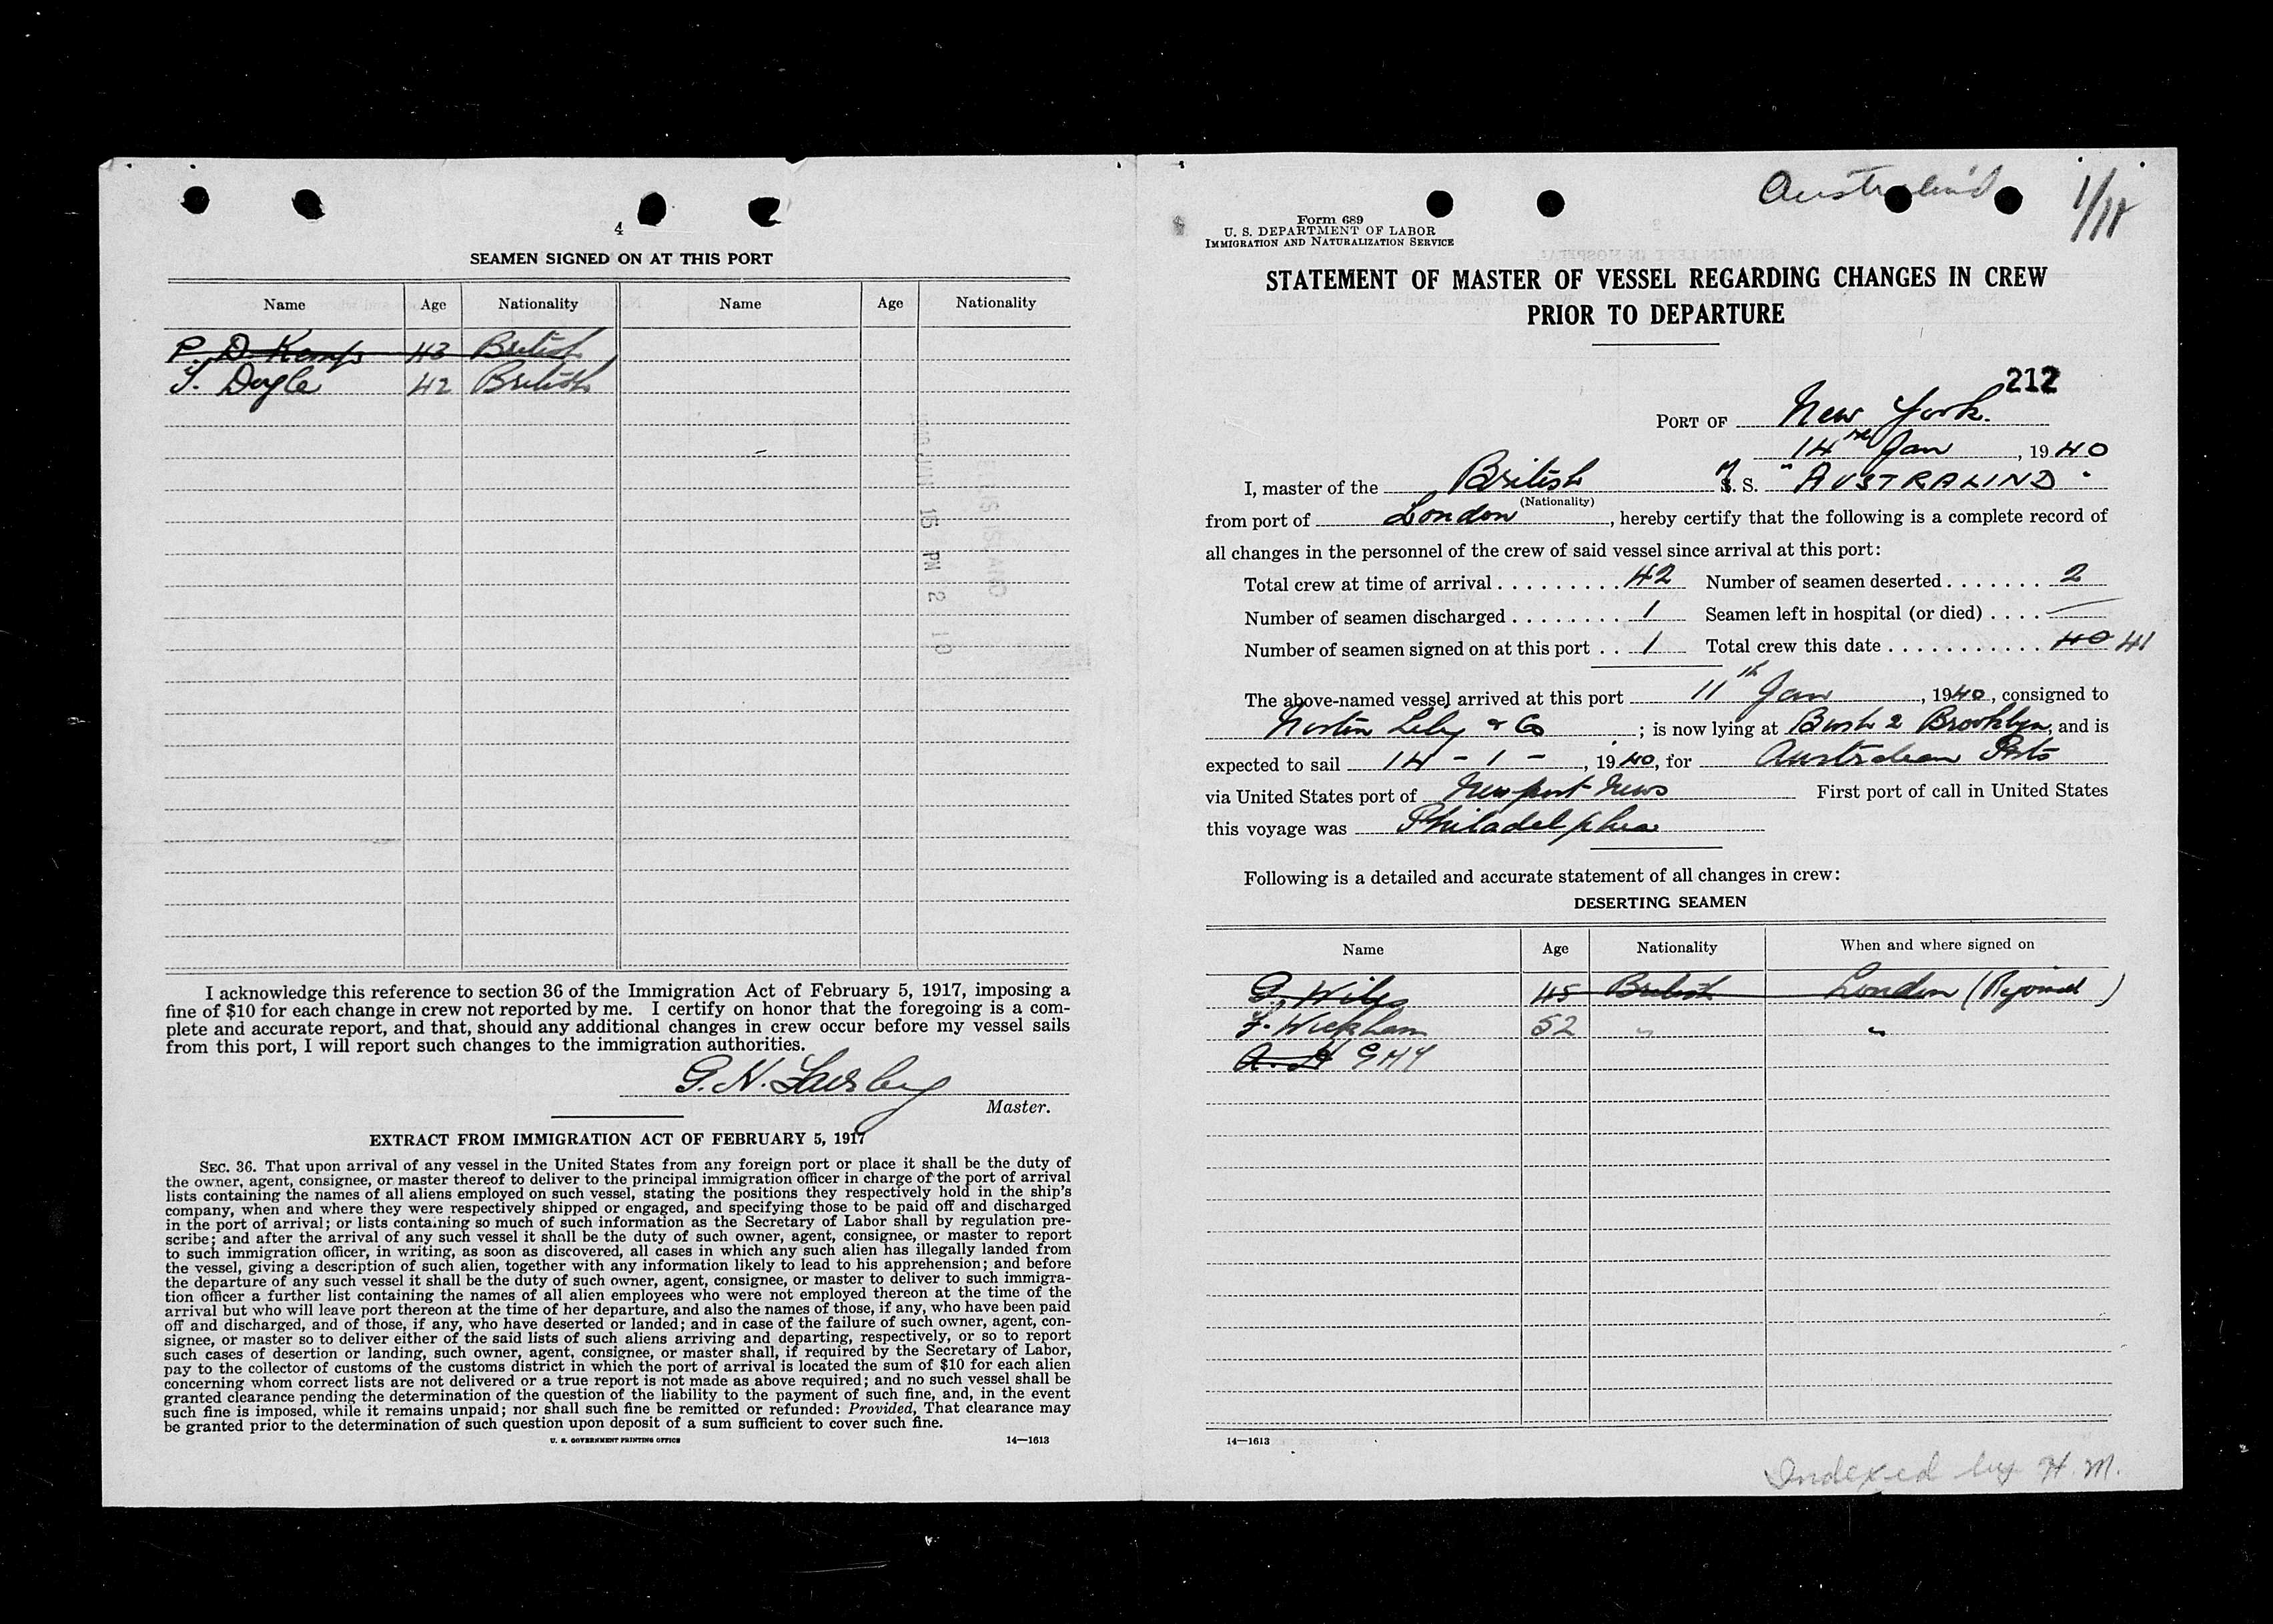 4
SEAMEN SIGNED ON AT THIS PORT
Name Age Nationality Name Age Nationality
P. D. Kemp 43 British
T. Doyle 42 British
JAN 15 PM 2 10
ELLIS ISLAND
I acknowledge this reference to section 36 of the Immigration Act of February 5, 1917, imposing a
fine of $10 for each change in crew not reported by me. I certify on honor that the foregoing is a com-
plete and accurate report, and that, should any additional changes in crew occur before my vessel sails
from this port, I will report such changes to the immigration authorities.
G. N.
Master.
EXTRACT FROM IMMIGRATION ACT OF FEBRUARY 5, 1917
SEC. 36. That upon arrival of any vessel in the United States from any foreign port or place it shall be the duty of
the owner, agent, consignee, or master thereof to deliver to the principal immigration officer in charge of the port of arrival
lists containing the names of all aliens employed on such vessel, stating the positions they respectively hold in the ship's
company, when and where they were respectively shipped or engaged, and specifying those to be paid off and discharged
in the port of arrival; or lists containing so much of such information as the Secretary of Labor shall by regulation pre-
scribe; and after the arrival of any such vessel it shall be the duty of such owner, agent, consignee, or master to report
to such immigration officer, in writing, as soon as discovered, all cases in which any such alien has illegally landed from
the vessel, giving a description of such alien, together with any information likely to lead to his apprehension; and before
the departure of any such vessel it shall be the duty of such owner, agent, consignee, or master to deliver to such immigra-
tion officer a further list containing the names of all alien employees who were not employed thereon at the time of the
arrival but who will leave port thereon at the time of her departure, and also the names of those, if any, who have been paid
off and discharged, and of those, if any, who have deserted or landed; and in case of the failure of such owner, agent, con-
signee, or master so to deliver either of the said lists of such aliens arriving and departing, respectively, or so to report
such cases of desertion or landing, such owner, agent, consignee, or master shall, if required by the Secretary of Labor,
pay to the collector of customs of the customs district in which the port of arrival is located the sum of $10 for each alien
concerning whom correct lists are not delivered or a true report is not made as above required; and no such vessel shall be
granted clearance pending the determination of the question of the liability to the payment of such fine, and, in the event
such fine is imposed, while it remains unpaid; nor shall such fine be remitted or refunded: Provided, That clearance may
be granted prior to the determination of such question upon deposit of a sum sufficient to cover such fine.
U. S. GOVERNMENT PRINTING OFFICE 14—1613
Australind
Form 689
U. S. DEPARTMENT OF LABOR
IMMIGRATION AND NATURALIZATION SERVICE
STATEMENT OF MASTER OF VESSEL REGARDING CHANGES IN CREW
PRIOR TO DEPARTURE
212
PORT OF New York.
14 Jan, 1940
I, master of the British M. S. "AUSTRALIND"
(Nationality)
from port of London, hereby certify that the following is a complete record of
all changes in the personnel of the crew of said vessel since arrival at this port:
Total crew at time of arrival 42 Number of seamen deserted 2
Number of seamen discharged 1 Seamen left in hospital (or died) —
Number of seamen signed on at this port 1 Total crew this date 40 41
The above-named vessel arrived at this port 11th Jan, 1940, consigned to
Norton Lily & Co; is now lying at Bush 2 Brooklyn, and is
expected to sail 14 - 1 -, 1940, for Australian Ports
via United States port of Newport News First port of call in United States
this voyage was Philadelphia
Following is a detailed and accurate statement of all changes in crew:
DESERTING SEAMEN
Name Age Nationality When and where signed on
G. Wiles 45 British London (Rejoined)
F. Wickham 52 " "
14—1613
Indexed by H. M.